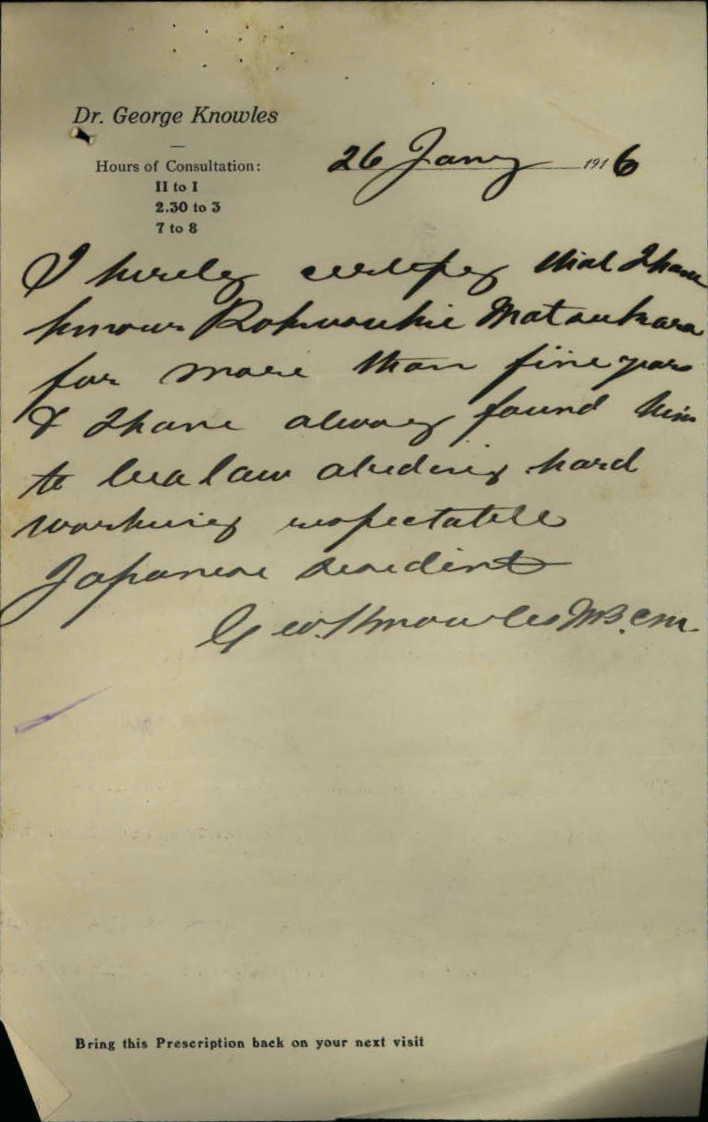 Dr. George Knowles
Hours of Consultation:
11 to 1
2.30 to 3
7 to 8
26 Jany 1916
I hereby certify that I have
known Matsukara
for more than five years
& I have always found him
to be a law abiding hard
working respectable
Japanese resident
Geo. Knowles M.B. C.M.
Bring this Prescription back on your next visit